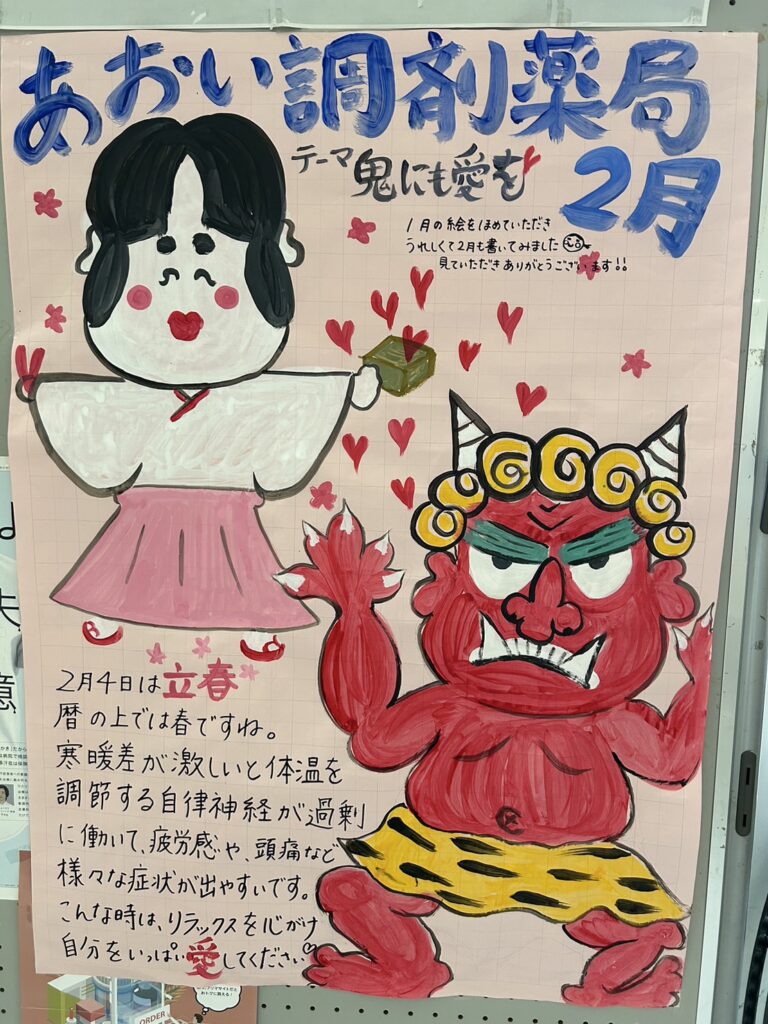 あおい調剤薬局
テーマ 鬼にも愛を
2月
1月の絵をほめていただき
うれしくて2月も書いてみました
見ていただきありがとうございます!!
2月4日は立春
暦の上では春ですね。
寒暖差が激しいと体温を
調節する自律神経が過剰
に働いて、疲労感や、頭痛など
様々な症状が出やすいです。
こんな時は、リラックスを心がけ
自分をいっぱい愛してください♡
ORDER